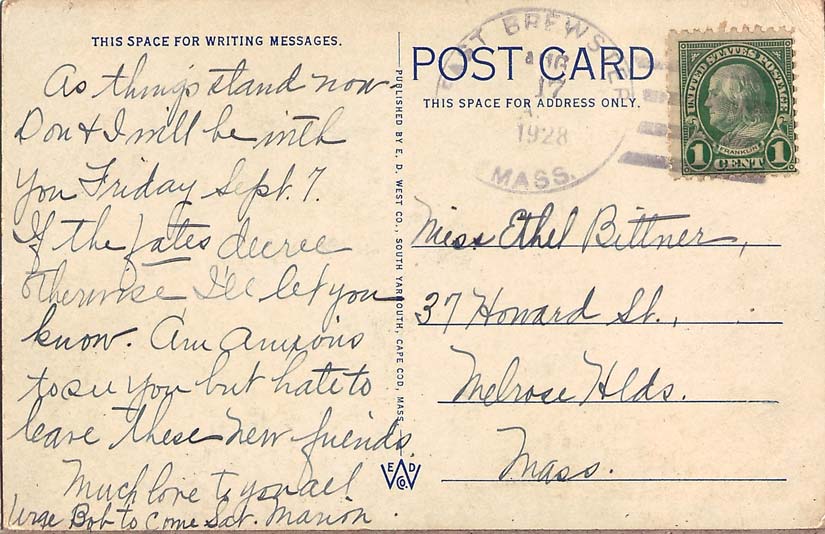 THIS SPACE FOR WRITING MESSAGES.
As things stand now
Don & I will be with
you Friday Sept. 7.
If the fates decree
otherwise, I'll let you
know. Am anxious
to see you but hate to
leave these new friends.
Much love to you all
Urge Bob to come Sat. Marion.
PUBLISHED BY E. D. WEST CO., SOUTH YARMOUTH, CAPE COD, MASS.
E D
W
Co.
POST CARD
THIS SPACE FOR ADDRESS ONLY.
EAST BREWSTER
AUG
17
1928
MASS.
UNITED STATES POSTAGE
FRANKLIN
1 CENT 1
Miss Ethel Bittner,
37 Howard St.,
Melrose Hlds.
Mass.